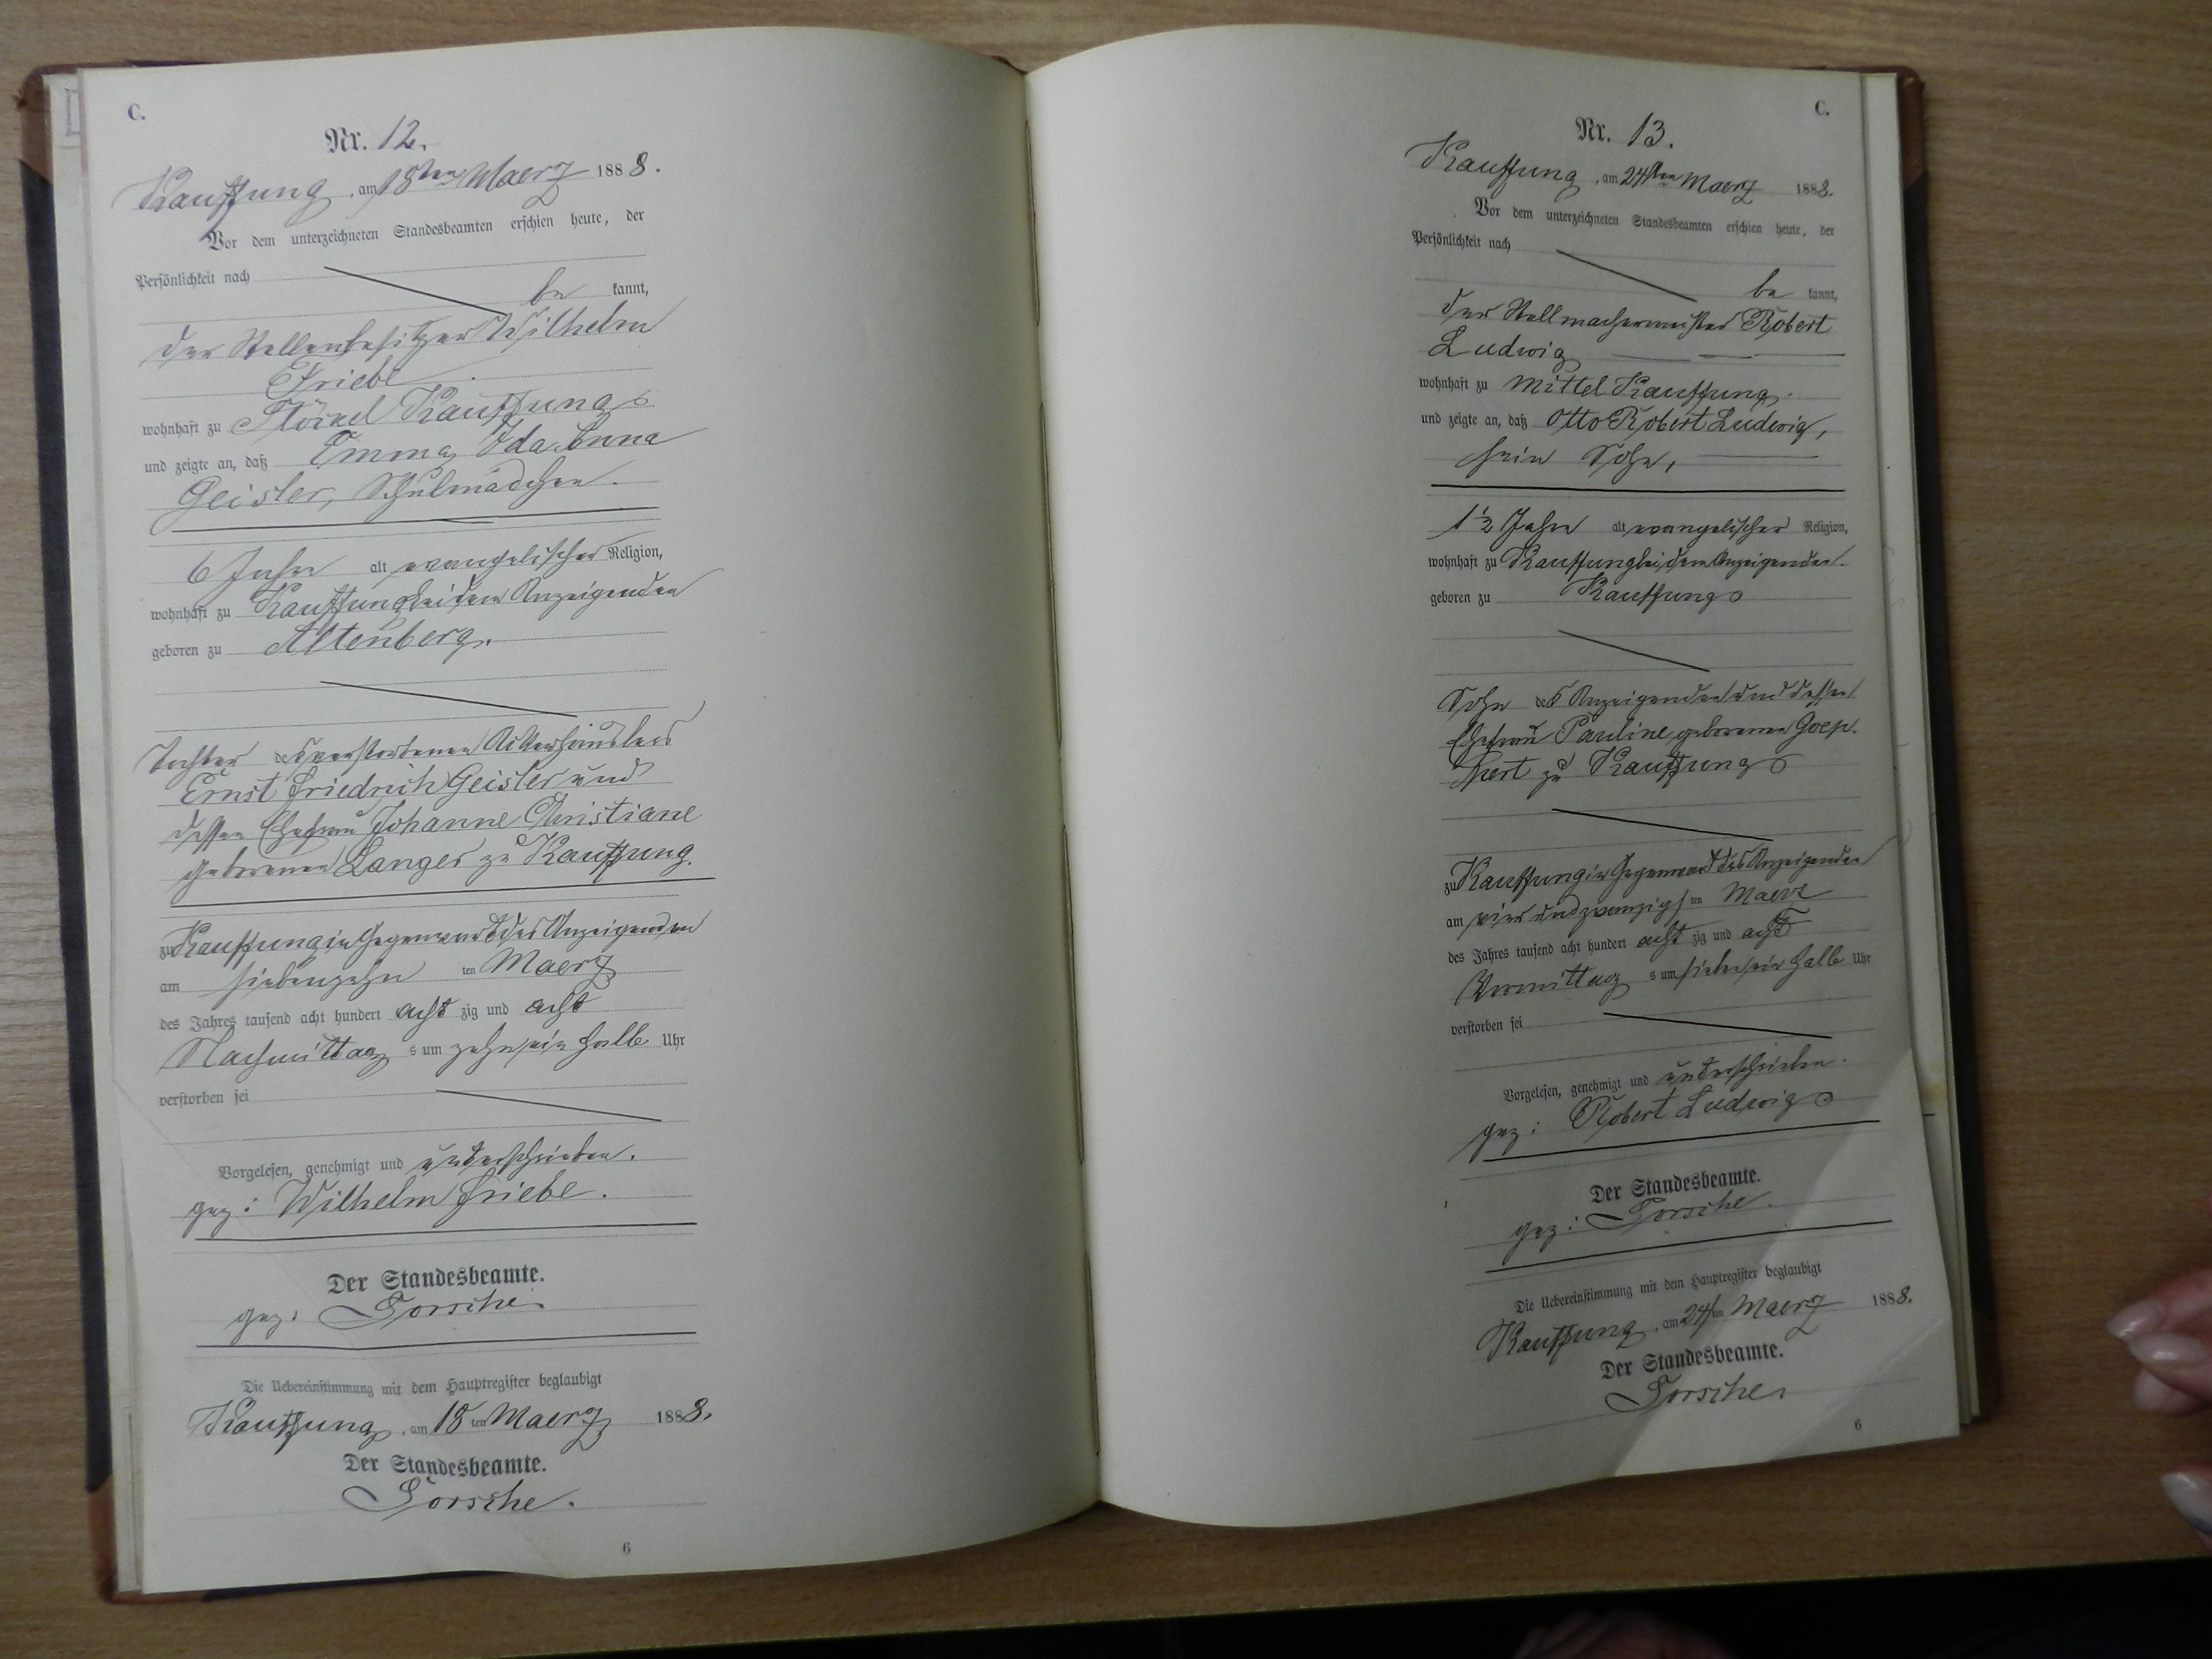 C.
Nr. 12.
Kauffung, am 18ten Maerz 1888.
Vor dem unterzeichneten Standesbeamten erschien heute, der
Persönlichkeit nach
be kannt,
der Stellenbesitzer Wilhelm
Friebe
wohnhaft zu Stöckel Kauffung
und zeigte an, daß Emma Ida Anna
Geisler, Schulmädchen.
6 Jahr alt evangelischer Religion,
wohnhaft zu Kauffung bei dem Anzeigenden
geboren zu Altenberg.
Tochter des verstorbenen Ackerhäuslers
Ernst Friedrich Geisler und
dessen Ehefrau Johanne Christiane
geborenen Langer zu Kauffung.
zu Kauffung in Gegenwart des Anzeigenden
am siebenzehn ten Maerz
des Jahres tausend acht hundert acht zig und acht
Nachmittag s um zehn ein halb Uhr
verstorben sei
Vorgelesen, genehmigt und unterschrieben.
gez: Wilhelm Friebe.
Der Standesbeamte.
gez: Forsche.
Die Uebereinstimmung mit dem Hauptregister beglaubigt
Kauffung, am 18 ten Maerz 1888.
Der Standesbeamte.
Forsche.
6
C.
Nr. 13.
Kauffung, am 24ten Maerz 1888.
Vor dem unterzeichneten Standesbeamten erschien heute, der
Persönlichkeit nach
be kannt,
der Stellmachermeister Robert
Ludwig
wohnhaft zu Mittel Kauffung.
und zeigte an, daß Otto Robert Ludwig,
sein Sohn,
1 1/2 Jahr alt evangelischer Religion,
wohnhaft zu Kauffung bei dem Anzeigenden.
geboren zu Kauffung
Sohn des Anzeigenden und dessen
Ehefrau Pauline geborenen Goep.
pert zu Kauffung
zu Kauffung in Gegenwart des Anzeigenden
am vier und zwanzigs ten Maerz
des Jahres tausend acht hundert acht zig und acht
Vormittag s um sieben ein halb Uhr
verstorben sei
Vorgelesen, genehmigt und unterschrieben.
gez: Robert Ludwig
Der Standesbeamte.
gez: Forsche.
Die Uebereinstimmung mit dem Hauptregister beglaubigt
Kauffung, am 24 ten Maerz 1888.
Der Standesbeamte.
Forsche.
6